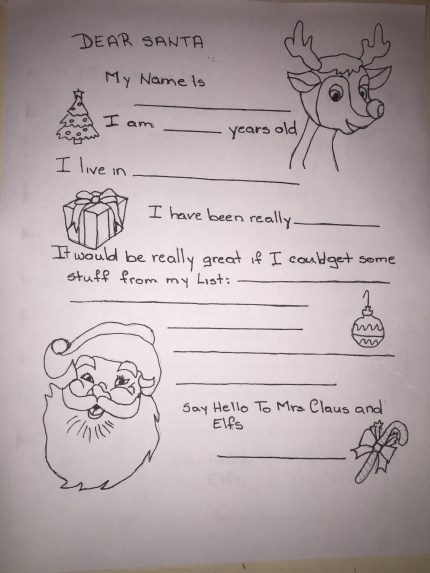 DEAR SANTA
My Name Is
I am years old
I live in
I have been really
It would be really great if I could get some
stuff from my List:
Say Hello To Mrs Claus and
Elfs